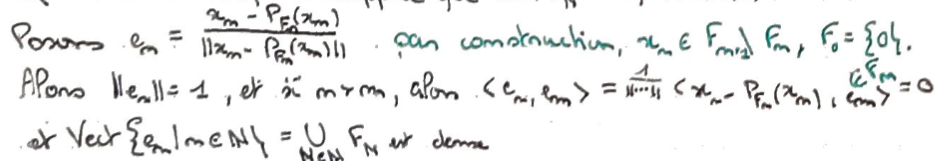 Posons e_n = \frac{x_n - P_{F_n}(x_n)}{||x_n - P_{F_n}(x_n)||} . par construction, x_n ∈ F_{n+1} \ F_n, F_0 = {0}.
Alors ||e_n|| = 1, et si n > m, alors <e_n, e_m> = \frac{1}{||....||} <x_n - P_{F_n}(x_n), e_m> = 0 ∈ F_n
et Vect {e_n | n ∈ N} = ∪_{N∈N} F_N est dense